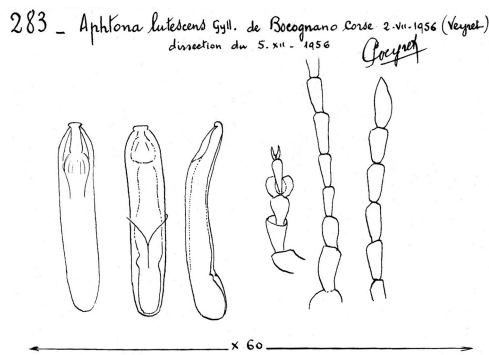 283 - Aphtona lutescens Gyll. de Bocognano Corse 2-VII-1956 (Veyret)
dissection du 5-XII-1956
x 60